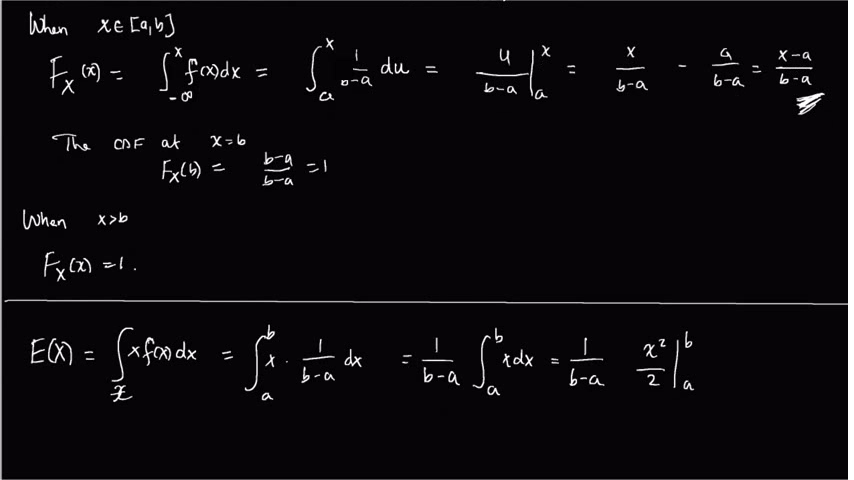 When x ∈ [a,b]
F_X(x) = ∫_{-∞}^{x} f(x)dx = ∫_{a}^{x} 1/(b-a) du = u/(b-a) |_{a}^{x} = x/(b-a) - a/(b-a) = (x-a)/(b-a)
The CDF at x=b
F_X(b) = (b-a)/(b-a) = 1
When x>b
F_X(x) = 1.
E(X) = ∫_{x} x f(x) dx = ∫_{a}^{b} x · 1/(b-a) dx = 1/(b-a) ∫_{a}^{b} x dx = 1/(b-a) x²/2 |_{a}^{b}